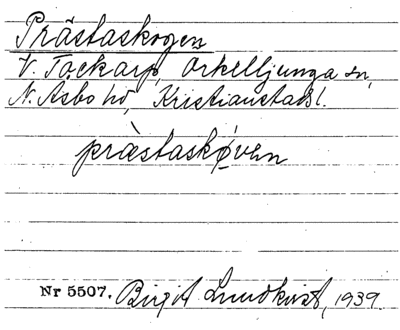 Prästaskogen
V. Tockarp, Örkelljunga sn,
N. Åsbo hd, Kristianstads l.
præstaskǿven
Nr 5507. Birgit Lundkvist, 1939